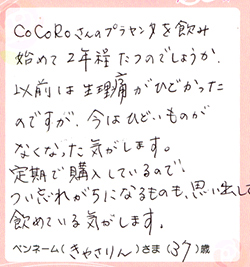 CoCoRoさんのプラセンタを飲み
始めて2年程たつのでしょうか。
以前は生理痛がひどかった
のですが、今はひどいものが
なくなった気がします。
定期で購入しているので、
つい忘れがちになるものも、思い出して
飲めている気がします。
ペンネーム(きゃさりん)さま(37)歳